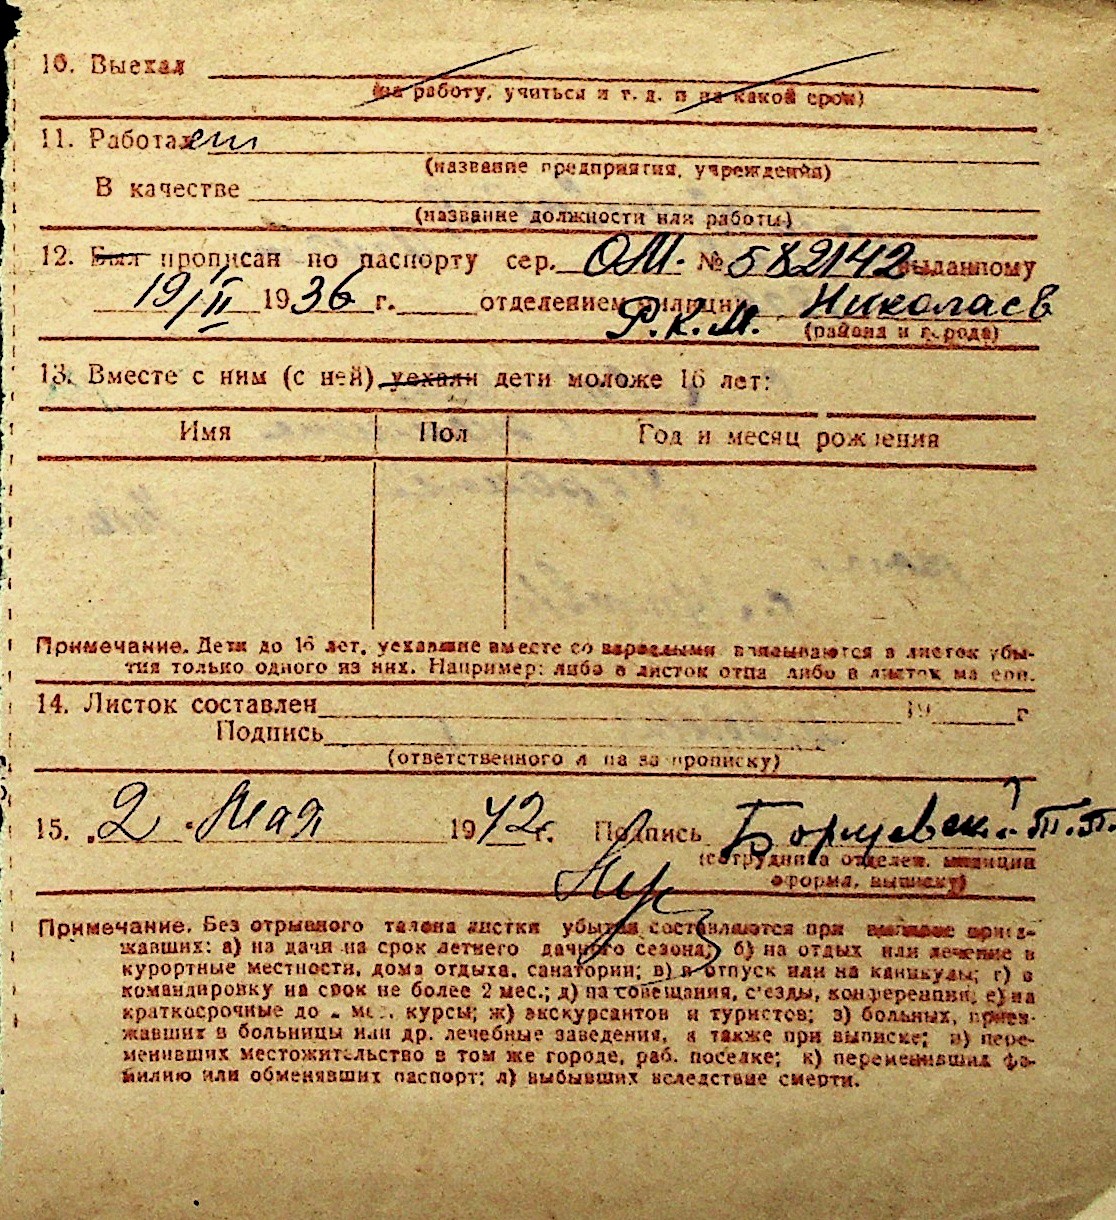 10. Выехал
(на работу, учиться и т. д. и на какой срок)
11. Работает
(название предприятия, учреждения)
В качестве
(название должности или работы)
12. Был прописан по паспорту сер. ОМ. № 582142 выданному
19/II 1936 г. отделением милиции Николаев
Р.К.М. (района и города)
13. Вместе с ним (с ней) уехали дети моложе 16 лет:
Имя Пол Год и месяц рождения
Примечание. Дети до 16 лет, уехавшие вместе со взрослыми вписываются в листок убы-
тия только одного из них. Например: либо в листок отца либо в листок матери.
14. Листок составлен 19 г
Подпись
(ответственного лица за прописку)
15. „2“ Мая 1942г. Подпись
(сотрудника отделен. милиции
оформл. выписку)
Примечание. Без отрывного талона листки убытия составляются при выписке приез-
жавших: а) на дачи на срок летнего дачного сезона; б) на отдых или лечение в
курортные местности, дома отдыха, санатории; в) в отпуск или на каникулы; г) в
командировку на срок не более 2 мес.; д) на совещания, с'езды, конференции; е) на
краткосрочные до мес. курсы; ж) экскурсантов и туристов; з) больных, приез-
жавших в больницы или др. лечебные заведения, а также при выписке; и) пере-
менивших местожительство в том же городе, раб. поселке; к) переменивших фа-
милию или обменявших паспорт; л) выбывших вследствие смерти.